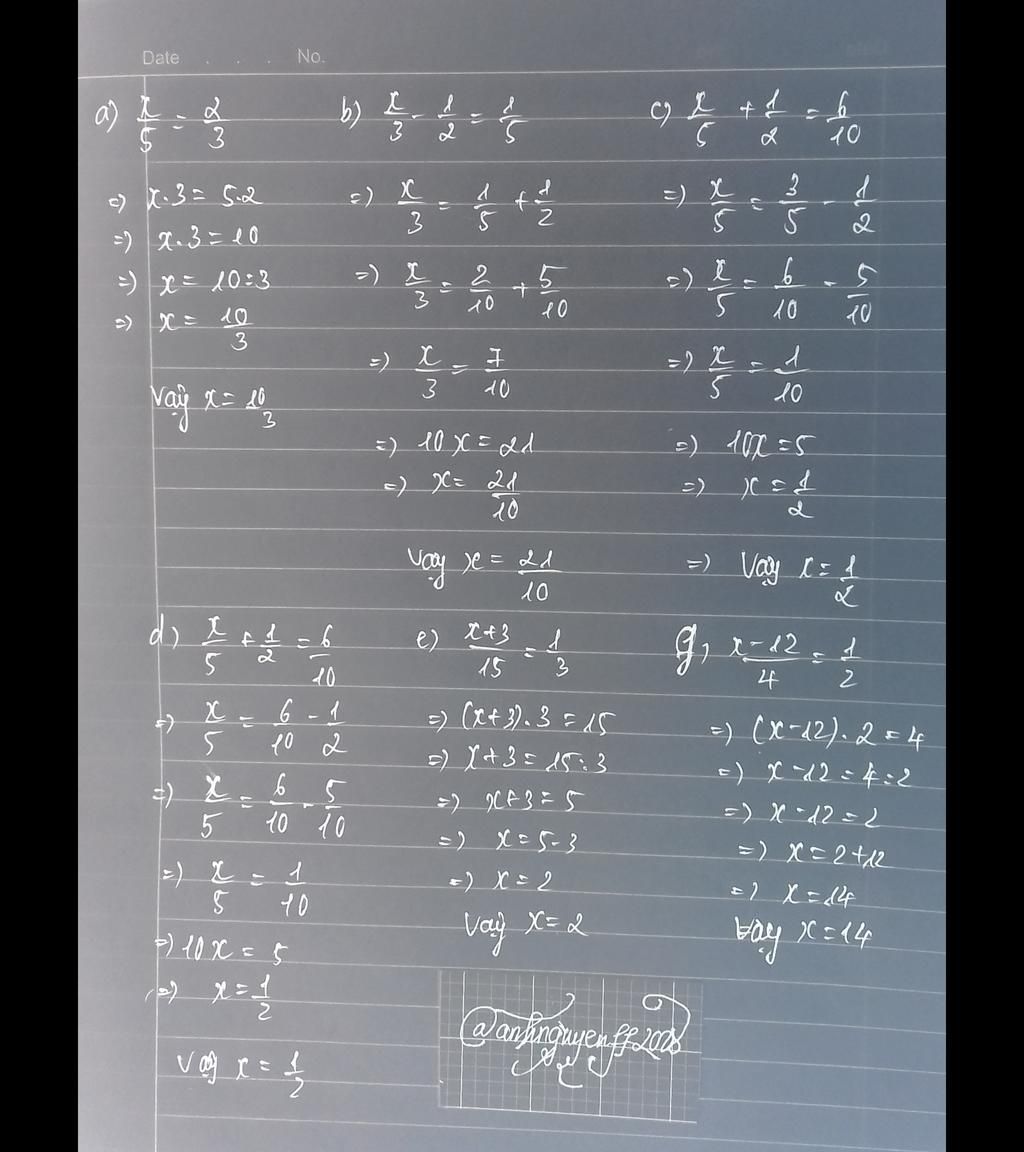 Date . . . No.
a) x/5 = 2/3
=) x.3 = 5.2
=) x.3 = 10
=) x = 10:3
=) x = 10/3
Vậy x = 10/3
b) x/3 - 1/2 = 1/5
=) x/3 = 1/5 + 1/2
=) x/3 = 2/10 + 5/10
=) x/3 = 7/10
=) 10x = 21
=) x = 21/10
Vậy x = 21/10
c) x/5 + 1/2 = 6/10
=) x/5 = 3/5 - 1/2
=) x/5 = 6/10 - 5/10
=) x/5 = 1/10
=) 10x = 5
=) x = 1/2
=) Vậy x = 1/2
d) x/5 + 1/2 = 6/10
=) x/5 = 6/10 - 1/2
=) x/5 = 6/10 - 5/10
=) x/5 = 1/10
=) 10x = 5
=) x = 1/2
Vậy x = 1/2
e) x+3/15 = 1/3
=) (x+3).3 = 15
=) x+3 = 15:3
=) x+3 = 5
=) x = 5-3
=) x = 2
Vậy x = 2
g) x-12/4 = 1/2
=) (x-12).2 = 4
=) x-12 = 4:2
=) x-12 = 2
=) x = 2+12
=) x = 14
Vậy x = 14
@anhnguyenff2008